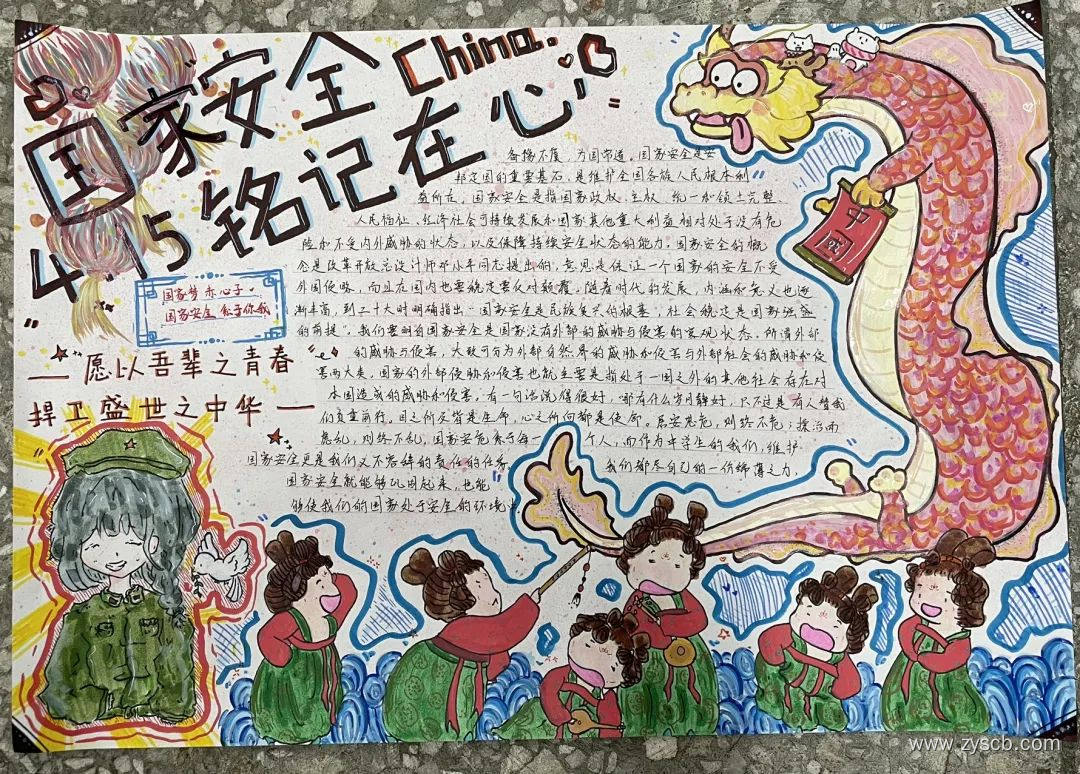 国家安全 China.
4.15 铭记在心
中国
国家梦 赤心子。
国家安全 系于你我
愿以吾辈之青春
捍卫盛世之中华
备豫不虞，为国常道。国家安全是安
邦定国的重要基石，是维护全国各族人民根本利
益所在，国家安全是指国家政权、主权、统一和领土完整、
人民福祉、经济社会可持续发展和国家其他重大利益相对处于没有危
险和不受内外威胁的状态，以及保障持续安全状态的能力。国家安全的概
念是改革开放总设计师邓小平同志提出的，意思是保证一个国家的安全不受
外国侵略，而且在国内也要稳定要反对颠覆，随着时代的发展，内涵和意义也逐
渐丰富，到二十大时明确指出“国家安全是民族复兴的根基”，社会稳定是国家强盛
的前提”。我们要明白国家安全是国家没有外部的威胁与侵害的客观状态。所谓外部
的威胁与侵害，大致可分为外部自然界的威胁和侵害与外部社会的威胁和侵
害两大类。国家的外部侵胁和侵害也就主要是指处于一国之外的其他社会存在对
本国造成的威胁和侵害，有一句话说得很好，哪有什么岁月静好，只不过是有人替我
们负重前行。目之所及皆是生命，心之所向都是使命。居安思危，则终不危；操治而
虑乱，则终不乱，国家安危系于每一个人，而作为中学生的我们，维护
国家安全更是我们义不容辞的责任的任务，我们都尽自己的一份绵薄之力，
国家安全就能够巩固起来，也能
够使我们的国家处于安全的环境中
www.zyscb.com